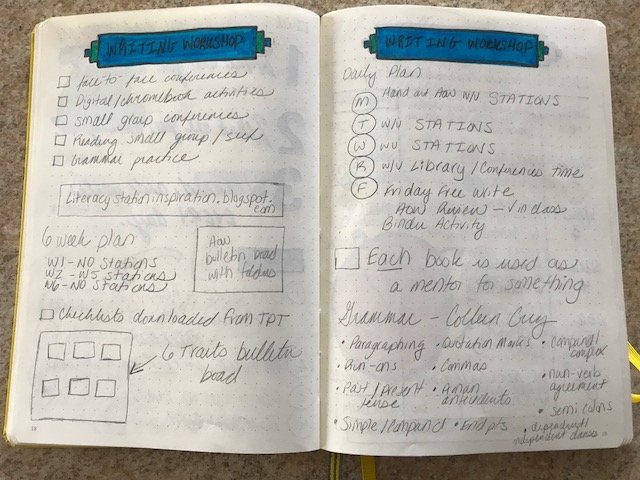 WRITING WORKSHOP
face-to-face conferences
Digital/chromebook activities
small group conferences
Reading small group / self
Grammar practice
Literacystationinspiration.blogspot.
com
6 week plan
W1 - NO Stations
W2 - W5 Stations
W6 - NO Stations
AOW
bulletin board
with folders
Checklists downloaded from TPT
6 Traits bulletin
board
WRITING WORKSHOP
Daily Plan
M Hand out AOW W/U STATIONS
T W/U STATIONS
W W/U STATIONS
R W/U Library / Conferences time
F Friday Free Write
AOW Review - √ in class
Binder Activity
Each book is used as
a mentor for something
Grammar - Colleen
• Paragraphing • Quotation Marks • compound/
complex
• Run-ons • Commas
• noun-verb
agreement
• Past / Present
tense
antecedents
• semi colons
• Simple / Compound • End pts • dependent/
independent clauses